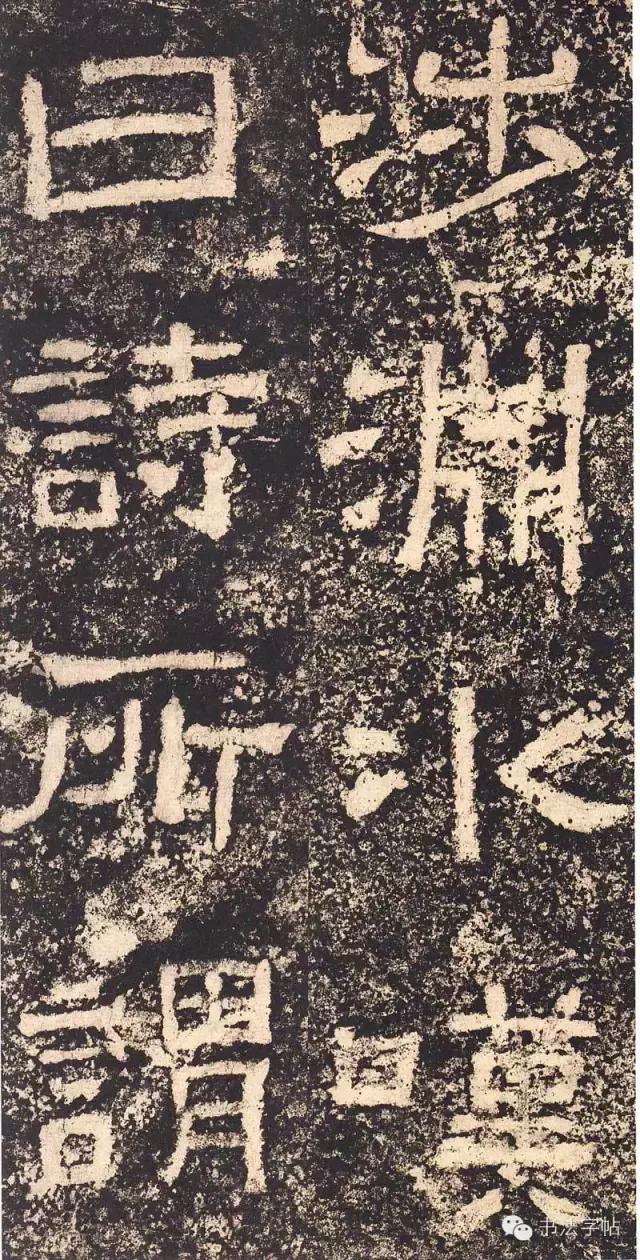 涉淵冰嘆
曰詩所謂
书法字帖